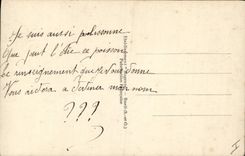 Je suis aussi polissonne
Que peut l'être ce poisson
Ce renseignement que je vous donne
Vous aidera a deviner mon nom
???